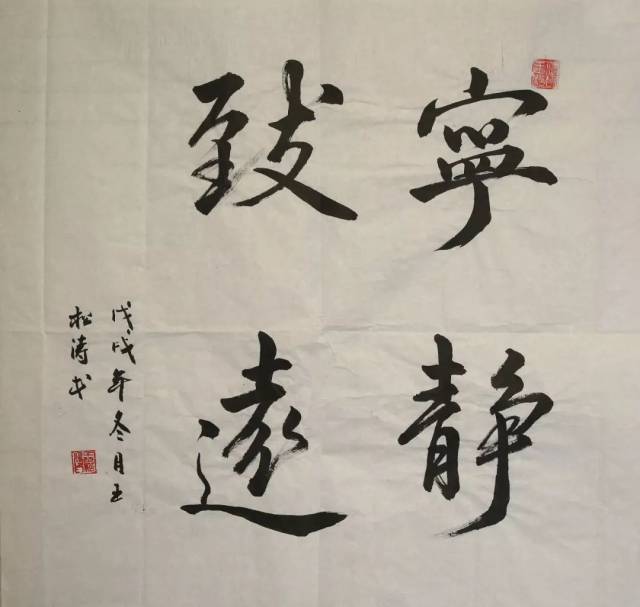 寧靜
致遠
戊戌年冬月王
松涛书